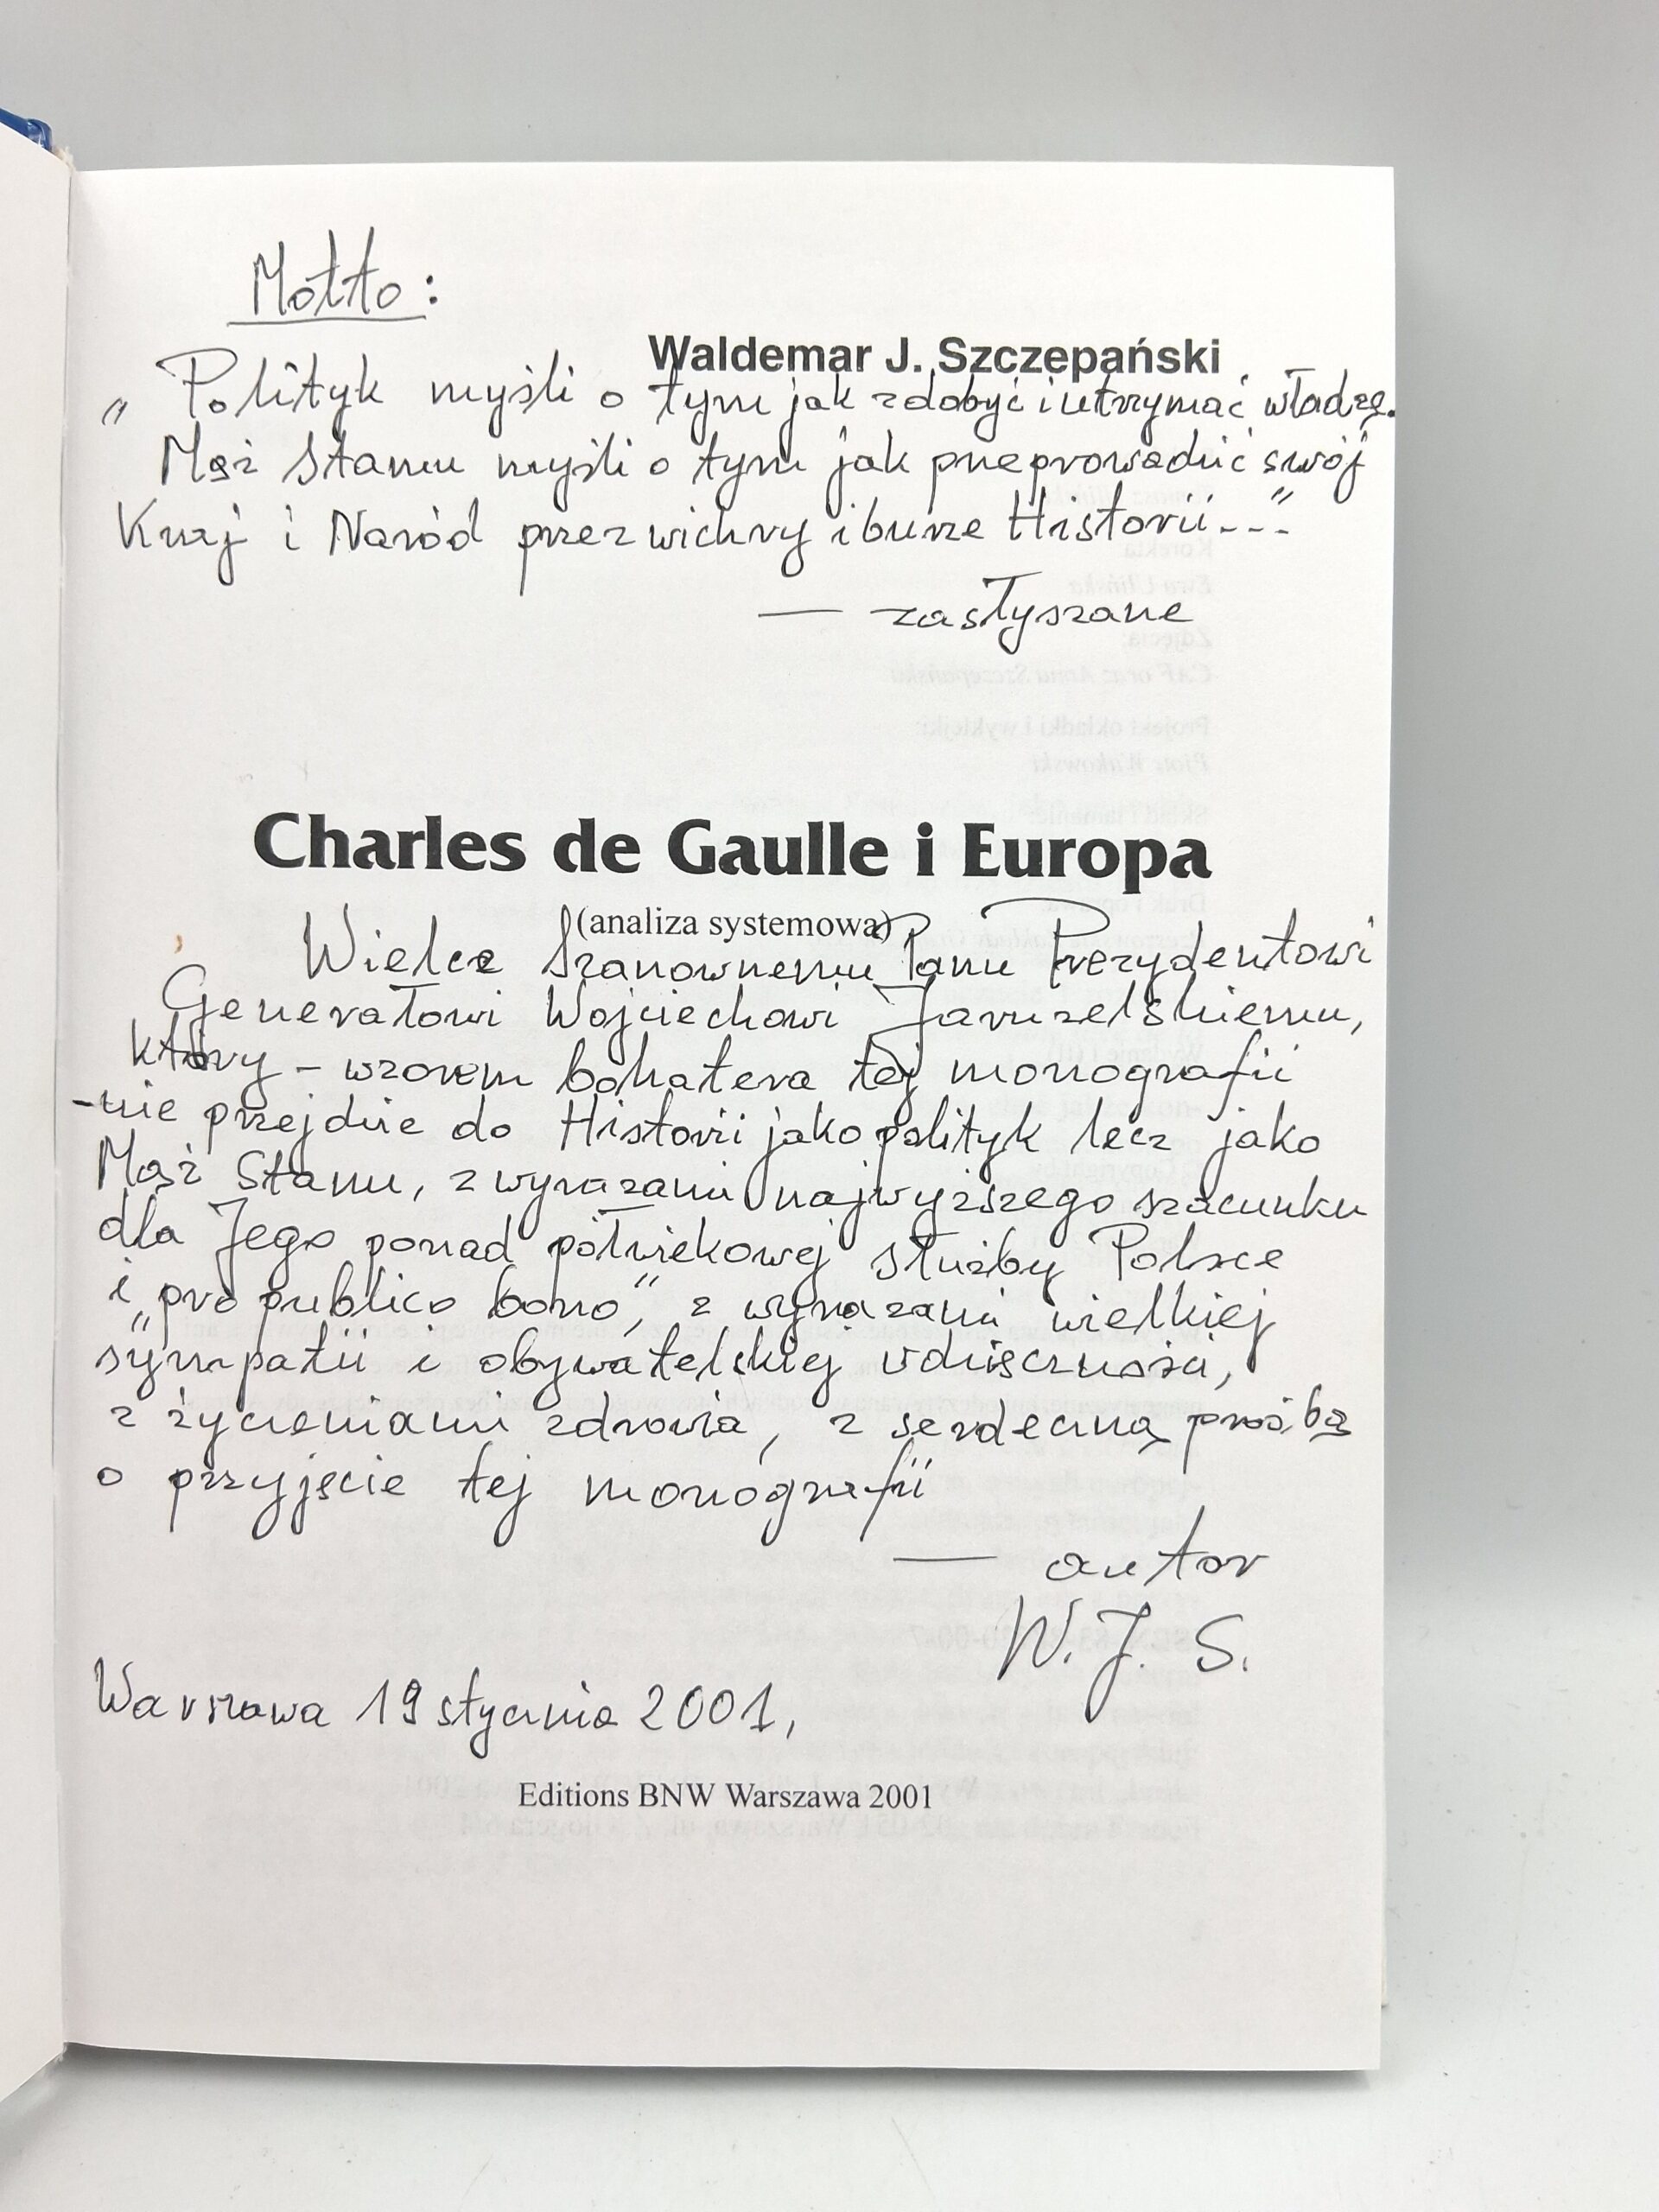 Motto:
Waldemar J. Szczepański
„Polityk myśli o tym jak zdobyć i utrzymać władzę.
Mąż Stanu myśli o tym jak przeprowadzić swój
Kraj i Naród przez wichry i burze Historii---"
— zasłyszane
Charles de Gaulle i Europa
(analiza systemowa)
Wielce Szanownemu Panu Prezydentowi
Generałowi Wojciechowi Jaruzelskiemu,
który – wzorem bohatera tej monografii
– nie przejdzie do Historii jako polityk lecz jako
Mąż Stanu, z wyrazami najwyższego szacunku
dla Jego ponad półwiekowej służby Polsce
i „pro publico bono", z wyrazami wielkiej
sympatii i obywatelskiej wdzięczności,
z życzeniami zdrowia, z serdeczną prośbą
o przyjęcie tej monografii
— autor
W. J. S.
Warszawa 19 stycznia 2001,
Editions BNW Warszawa 2001